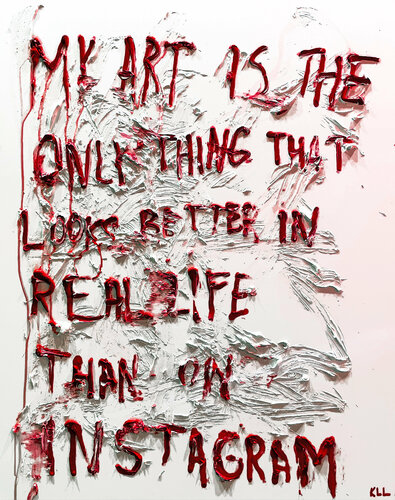 MY ART IS THE
ONLY THING THAT
LOOKS BETTER IN
REAL LIFE
THAN ON
INSTAGRAM
KLL